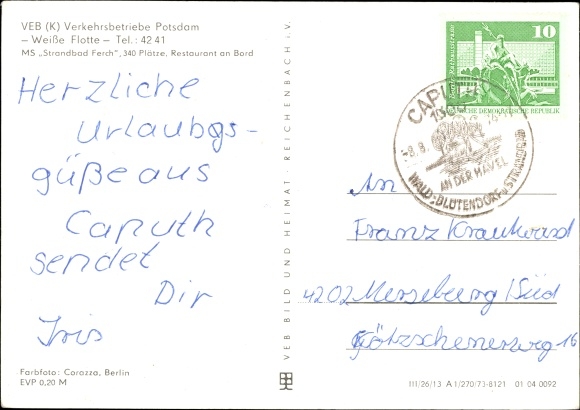 VEB (K) Verkehrsbetriebe Potsdam
— Weiße Flotte — Tel.: 42 41
MS „Strandbad Ferch", 340 Plätze, Restaurant an Bord
Herzliche
Urlaubgs-
güße aus
Caputh
sendet
Dir
Iris
Farbfoto: Corazza, Berlin
EVP 0,20 M
VEB BILD UND HEIMAT · REICHENBACH i. V.
10
DEUTSCHE DEMOKRATISCHE REPUBLIK
CAPUTH
-8.8.
AN DER HAVEL
WALD-BLÜTENDORF u. STRANDBAD
An
Franz Krankward
4202 Merseburg / Süd
Götzschenerweg 16
III/26/13 A 1/270/73-8121 01 04 0092